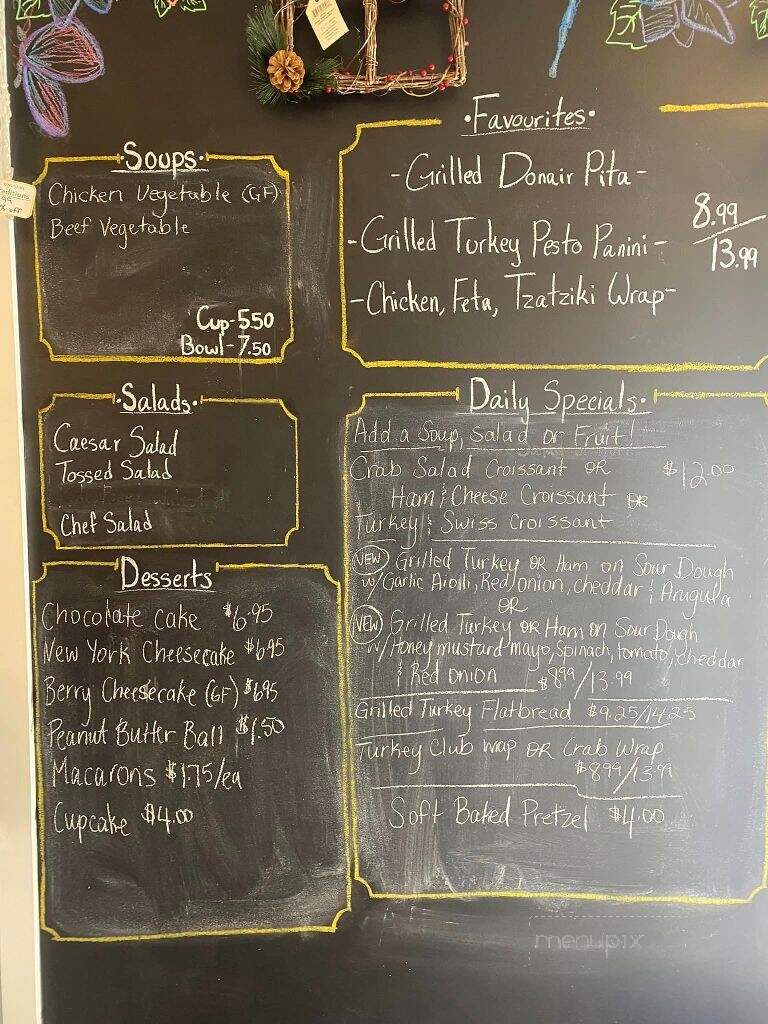 Soups
Chicken Vegetable (GF)
Beef Vegetable
Cup-5.50
Bowl-7.50
Salads
Caesar Salad
Tossed Salad
Chef Salad
Desserts
Chocolate cake $6.95
New York Cheesecake $6.95
Berry Cheesecake (GF) $6.95
Peanut Butter Ball $1.50
Macarons $1.75/ea
Cupcake $4.00
•Favourites•
-Grilled Donair Pita-
-Grilled Turkey Pesto Panini-
8.99
13.99
-Chicken, Feta, Tzatziki Wrap-
Daily Specials
Add a Soup, Salad or Fruit!
Crab Salad Croissant OR $12.00
Ham & Cheese Croissant OR
Turkey & Swiss Croissant
NEW Grilled Turkey OR Ham on Sour Dough
w/Garlic Aioili, Red onion, cheddar & Arugula
OR
NEW Grilled Turkey OR Ham on Sour Dough
w/Honey mustard mayo, Spinach, tomato, cheddar
& Red onion $8.99/13.99
Grilled Turkey Flatbread $9.25/14.25
Turkey Club wrap OR Crab Wrap
$8.99/13.99
Soft Baked Pretzel $4.00
menupix